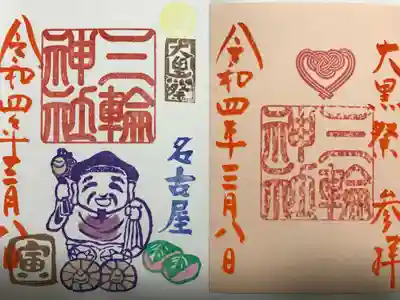 大黒祭
三輪
神社
名古屋
令和四年三月八日
寅
大黒祭 参拝
三輪
神社
令和四年三月八日